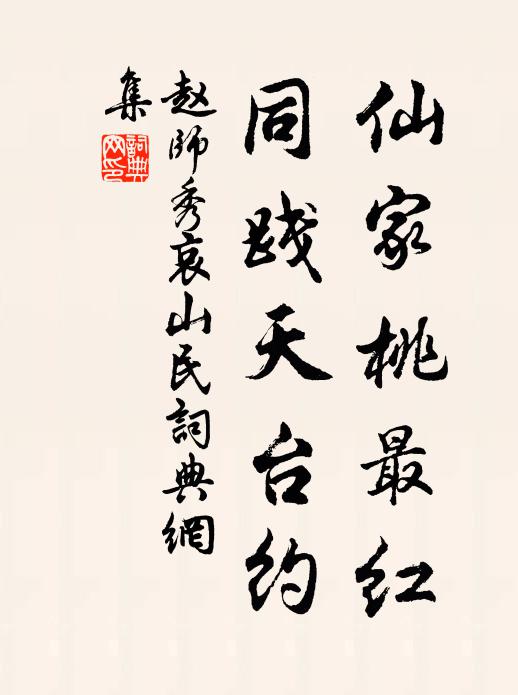 仙家桃最红
同践天台约
赵師秀哀山民詞典網
集
詞典
网印